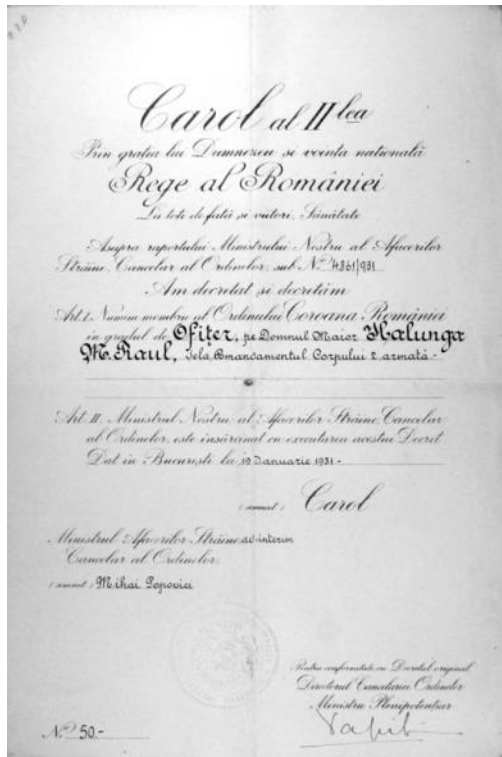 Carol al II lea
Prin gratia lui Dumnezeu si vointa natională
Rege al României
La toti de fată si viitori, Sănătate
Asupra raportului Ministrului Nostru al Afacerilor
Străine, Cancelar al Ordinelor, sub No 4361/931
Am decretat si decretăm
Art. I. Numim membru al Ordinului Coroana României
in gradul de Ofiţer, pe Domnul Maior Halunga
M. Raul, dela Comandamentul Corpului 2 armată.-
Art. II. Ministrul Nostru al Afacerilor Străine, Cancelar
al Ordinelor, este insărcinat cu executarea acestui Decret
Dat in Bucuresti la 19 Ianuarie 1931-
(semnat) Carol
Ministrul Afacerilor Străine ad-interim
Cancelar al Ordinelor,
(semnat) Mihai Popovici
Pentru conformitate cu Decretul original
Directorul Cancelariei Ordinelor
Ministru Plenipotentiar
No 50.-